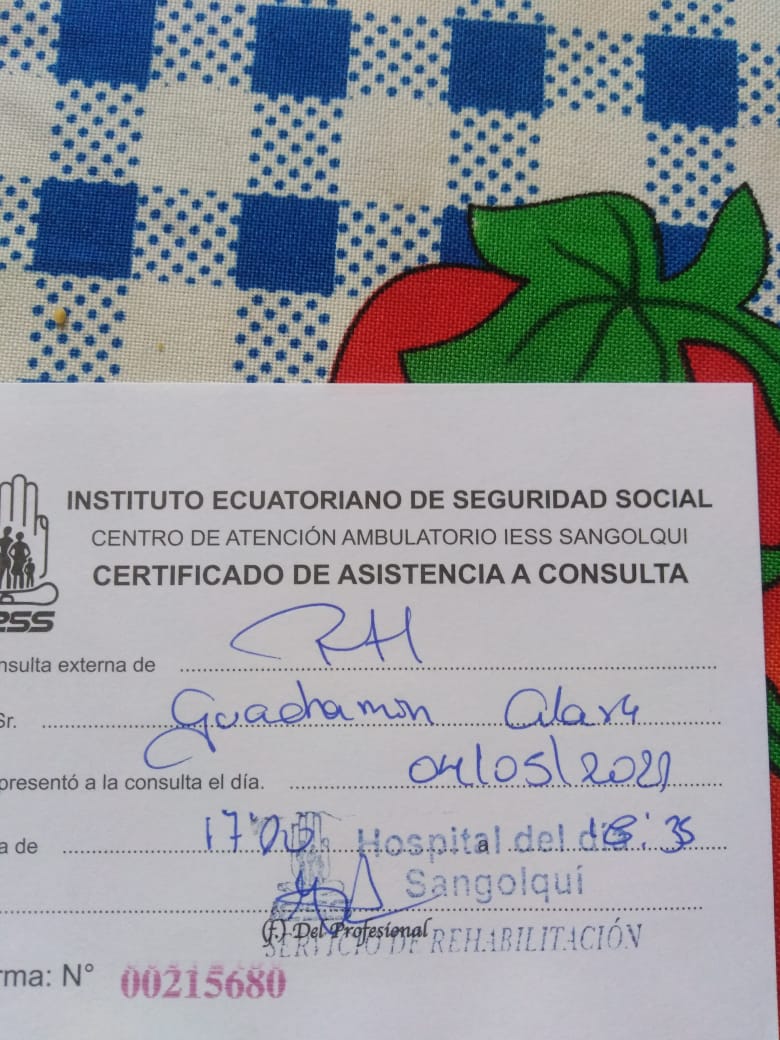 INSTITUTO ECUATORIANO DE SEGURIDAD SOCIAL
CENTRO DE ATENCIÓN AMBULATORIO IESS SANGOLQUI
CERTIFICADO DE ASISTENCIA A CONSULTA
ESS
nsulta externa de RH
Sr. Guachamin
presentó a la consulta el día. 04/05/2021
a de 17:00 a 18:35
Hospital del día
Sangolquí
(f.) Del Profesional
SERVICIO DE REHABILITACIÓN
rma: N° 00215680